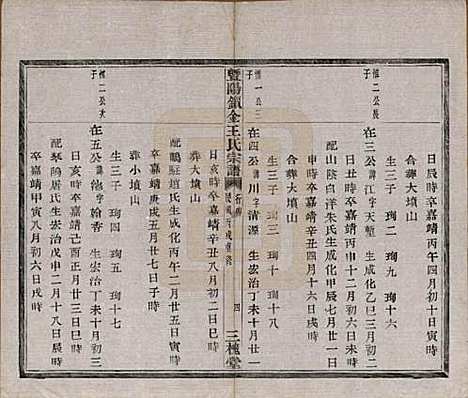 日辰時卒嘉靖丙午四月初十日寅時
合葬大墳山
惟二公長子
在三公諱江字天塹 生成化乙巳三月初二
日丑時卒嘉靖丙申十二月初六日戌時
配山陰白洋朱氏生成化甲辰七月廿一日
申時卒嘉靖丙午四月初六日辰時
生三子 珣二 珣九 珣十六
合葬大墳山
惟一公三子
在四公諱川字清源 生宏治丁未十月廿一
生三子 珣三 珣十 珣十八
暨陽鎖金王氏宗譜
四
三槐堂
日亥時卒嘉靖 八月初二日巳時
配鵶駐趙氏生成化丙午二月廿五日寅時
卒嘉靖庚戌五月廿七日子時
葬大墳山
惟二公次子
在五公諱 字翰香 生宏治戊申十月初三
日戌時卒嘉靖己酉正月廿三日亥時
配琴隖屠氏生宏治戊申二月十八日辰時
卒嘉靖甲寅八月初六日戌時
生三子 珣四 珣五 珣十七
葬小墳山